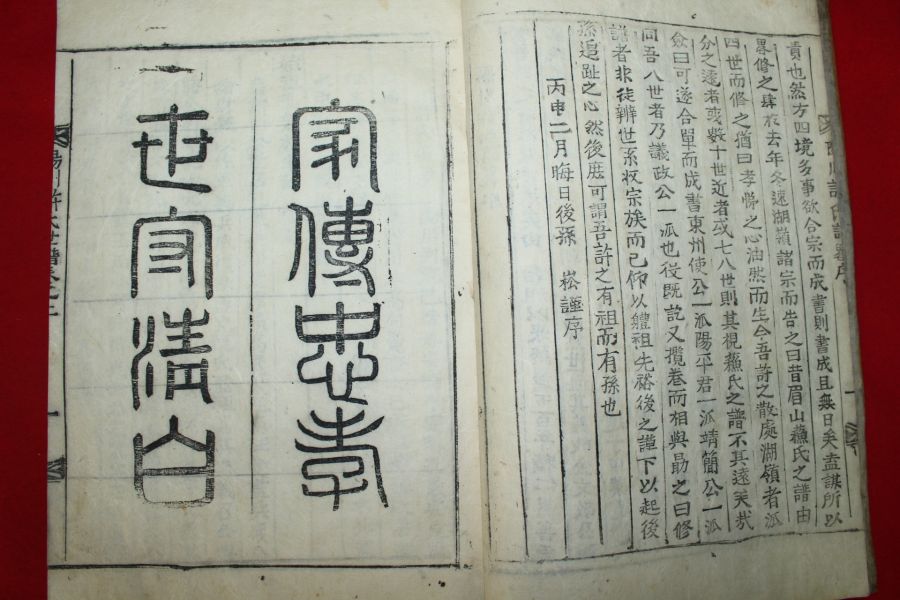 責也然方四境多事欲合宗而成書則書成且無日矣盍謀所以
畧修之肆於去年冬遍湖嶺諸宗而告之曰昔眉山蘓氏之譜由
四世而修之猶曰孝悌之心油然而生今吾許之散處湖嶺者派
分之遠者或數十世近者或七八世則其視蘓氏之譜不其遠矣哉
僉曰可遂合單而成書東州使公一派陽平君一派靖簡公一派
同吾八世者乃議政公一派也役既訖又攬卷而相與勗之曰修
譜者非徒辨世系收宗族而已仰以軆祖先裕後之謨下以起後
孫追趾之心然後庶可謂吾許之有祖而有孫也
丙申二月晦日後孫 崧謹序
家傳忠孝
世守清白